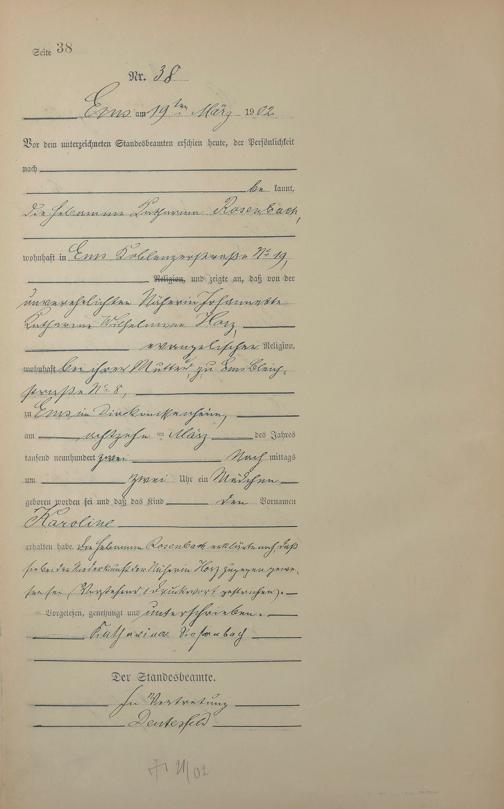 Seite 38
Nr. 38
Ems am 19ten März 1902
Vor dem unterzeichneten Standesbeamten erschien heute, der Persönlichkeit
nach
be kannt,
die Hebamme Katharina Rosenbach,
wohnhaft in Ems Koblenzerstraße No 19,
Religion, und zeigte an, daß von der
unverehelichten Näherin Johannette
Katharine Wilhelmine Horz,
evangelischer Religion,
wohnhaft bei ihrer Mutter, zu Ems Bleich-
straße No 8,
zu Ems im
am achtzehn ten März des Jahres
tausend neunhundert zwei Nach mittags
um zwei Uhr ein Mädchen
geboren worden sei und daß das Kind den Vornamen
Karoline
erhalten habe. Die Hebamme Rosenbach erklärte noch daß
sie bei der Niederkunft der Näherin Horz zugegen gewe-
sen sei. (Vorstehend 1 Druckwort gestrichen). -
Vorgelesen, genehmigt und unterschrieben. -
Katharina Rosenbach
Der Standesbeamte.
In Vertretung